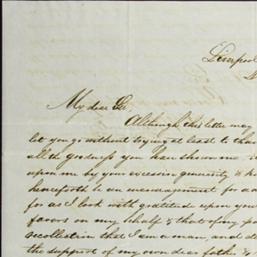 Liverpool
My dear Sir,
Although this letter may
let you go without trying at least to thank
all the goodness you have shown me
upon me by your excessive generosity &
henceforth be an encouragement for
for as I look with gratitude upon your
favors on my behalf & that of my
recollection that I am a man, and
the support of my own dear father &